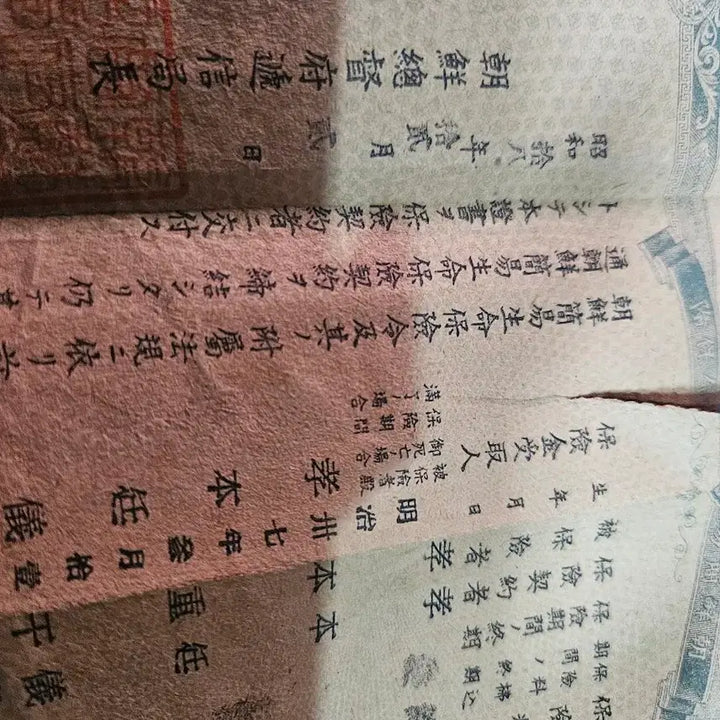 保險料拂込
期間ノ終期
保險期間ノ終期
保險契約者 孝本
被保險者 孝本
生年月日 明治卅七年參月拾壹
保險金受取人
被保險者殿
御死亡ノ場合
孝本任儀
保險期間
滿了ノ場合
朝鮮簡易生命保險令及其ノ附屬法規ニ依リ
通朝鮮簡易生命保險契約ヲ締結シタリ仍テ其
トシテ本證書ヲ保險契約者ニ交付ス
昭和拾八年拾貳月貳日
朝鮮總督府遞信局長